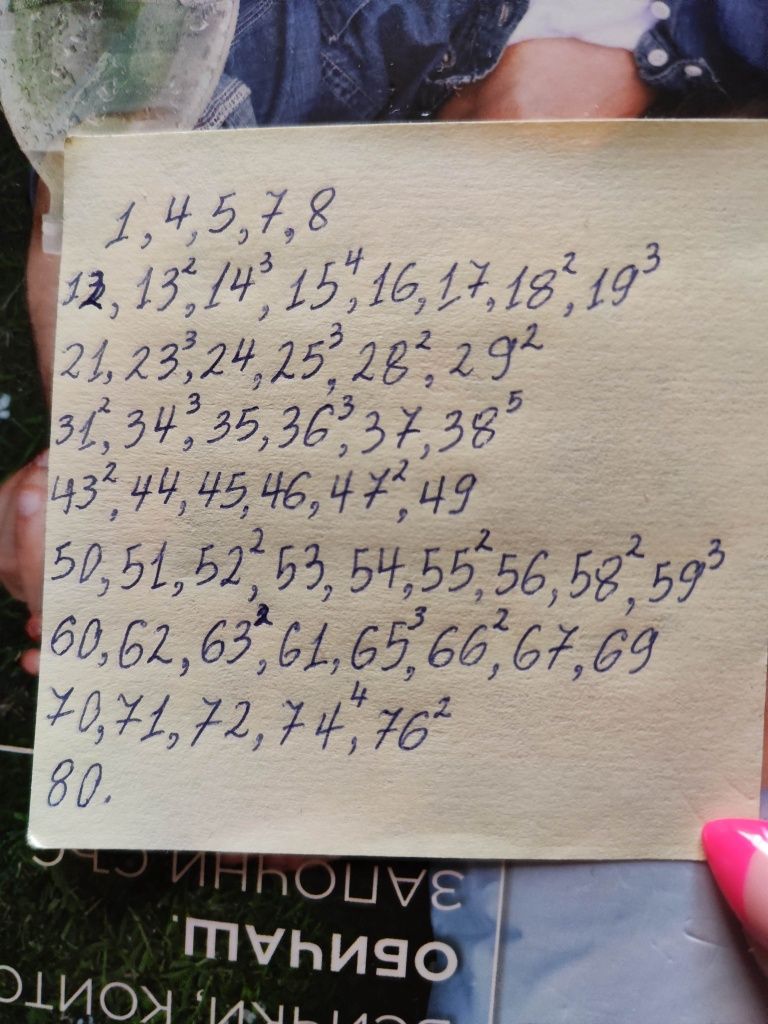 1, 4, 5, 7, 8
12, 13², 14³, 15⁴, 16, 17, 18², 19³
21, 23³, 24, 25³, 28², 29²
31², 34³, 35, 36³, 37, 38⁵
43², 44, 45, 46, 47², 49
50, 51, 52², 53, 54, 55², 56, 58², 59³
60, 62, 63², 61, 65³, 66², 67, 69
70, 71, 72, 74⁴, 76²
80.
ЗАПОЧНИ СЪС
ОБИЧАШ.
ВСИЧКИ, КОИТО